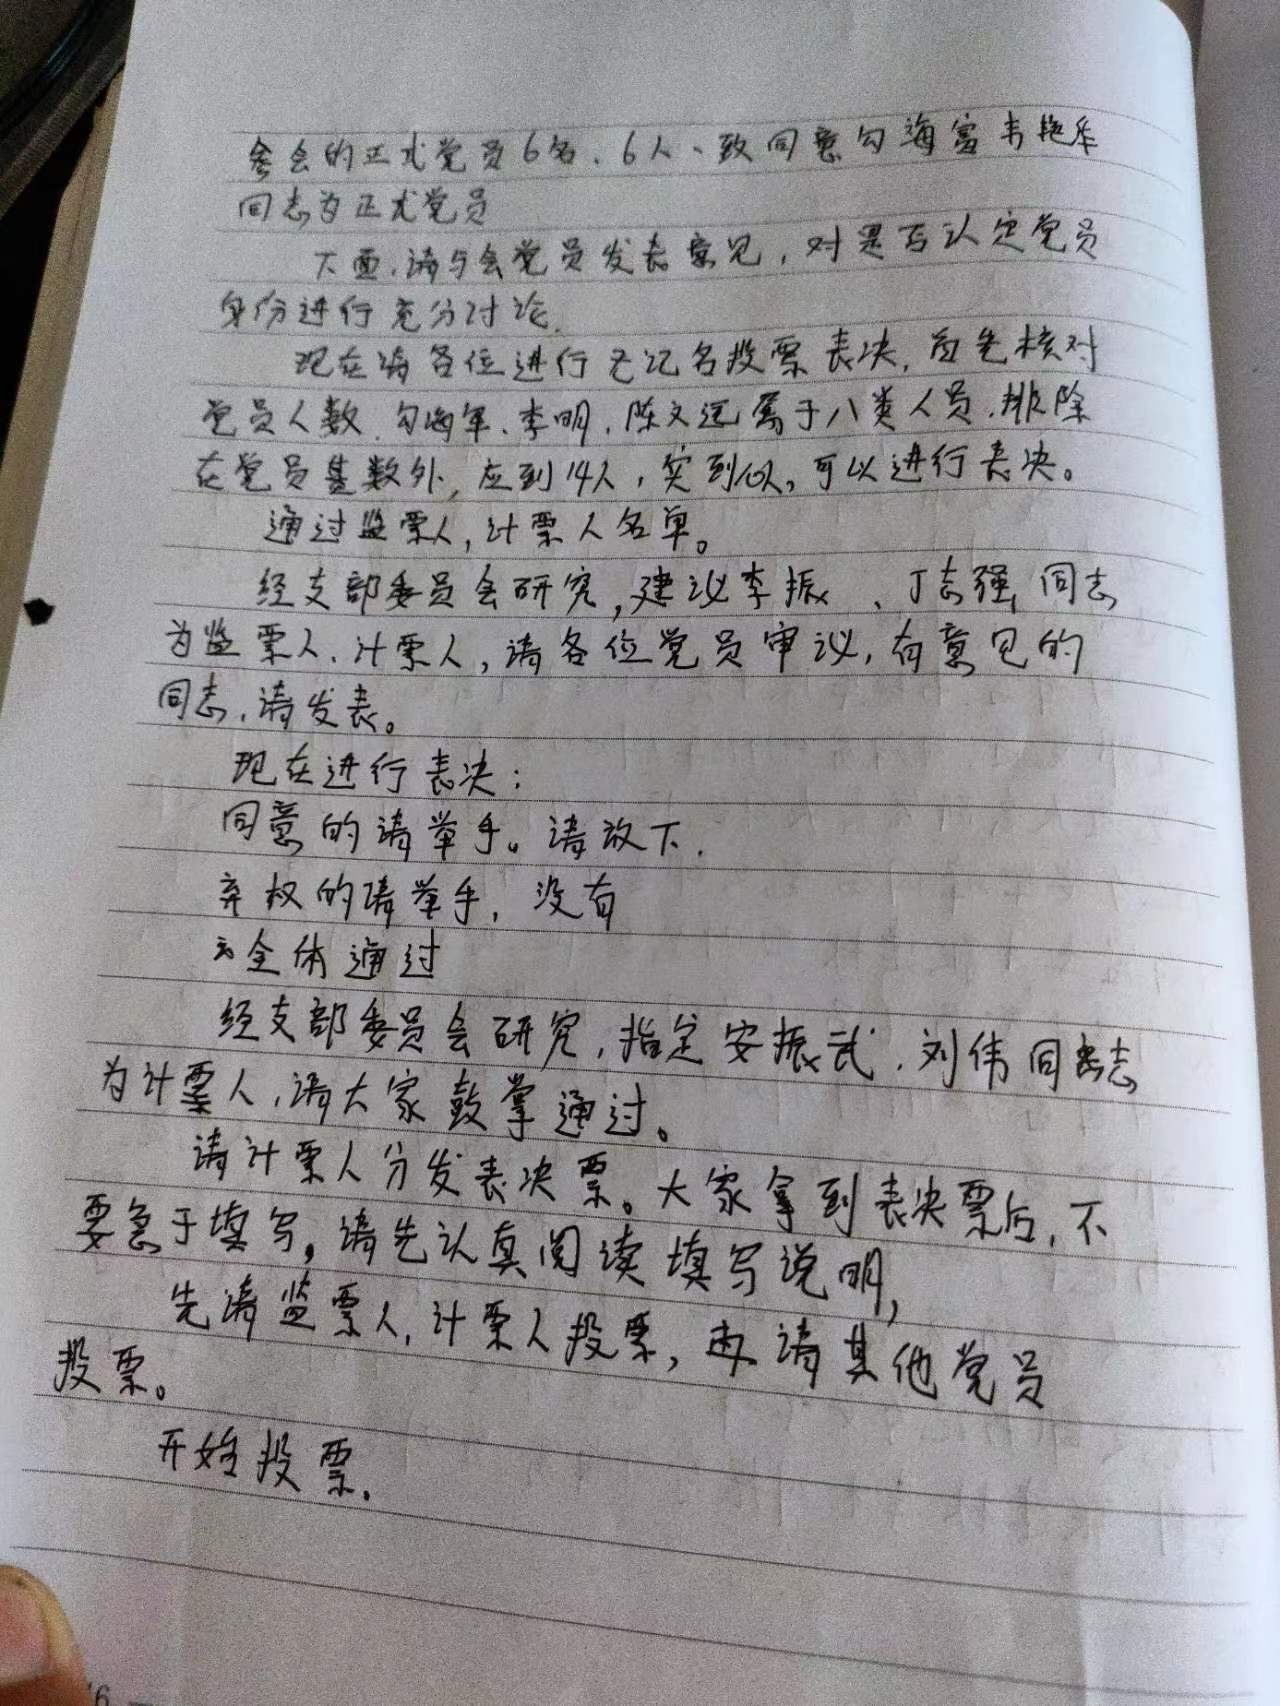 参会的正式党员6名、6人一致同意勾海富韦艳华
同志为正式党员
下面,请与会党员发表意见,对是否认定党员
身份进行充分讨论.
现在请各位进行无记名投票表决,首先核对
党员人数.勾海军、李明,陈文远属于八类人员.排除
在党员基数外,应到14人,实到10人,可以进行表决。
通过监票人,计票人名单。
经支部委员会研究,建议李振、丁志强同志
为监票人、计票人,请各位党员审议,有意见的
同志,请发表。
现在进行表决:
同意的请举手。请放下.
弃权的请举手,没有
全体通过
经支部委员会研究,指定安振武.刘伟同志
为计票人,请大家鼓掌通过。
请计票人分发表决票。大家拿到表决票后,不
要急于填写,请先认真阅读填写说明,
先请监票人,计票人投票,再请其他党员
投票。
开始投票.